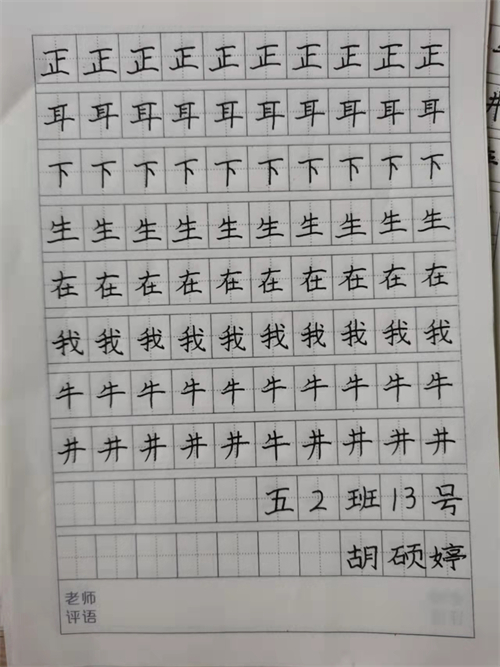 正正正正正正正正正正
耳耳耳耳耳耳耳耳耳耳
下下下下下下下下下下
生生生生生生生生生生
在在在在在在在在在在
我我我我我我我我我我
牛牛牛牛牛牛牛牛牛牛
井井井井井牛井井井井
五2班13号
胡硕婷
老师
评语